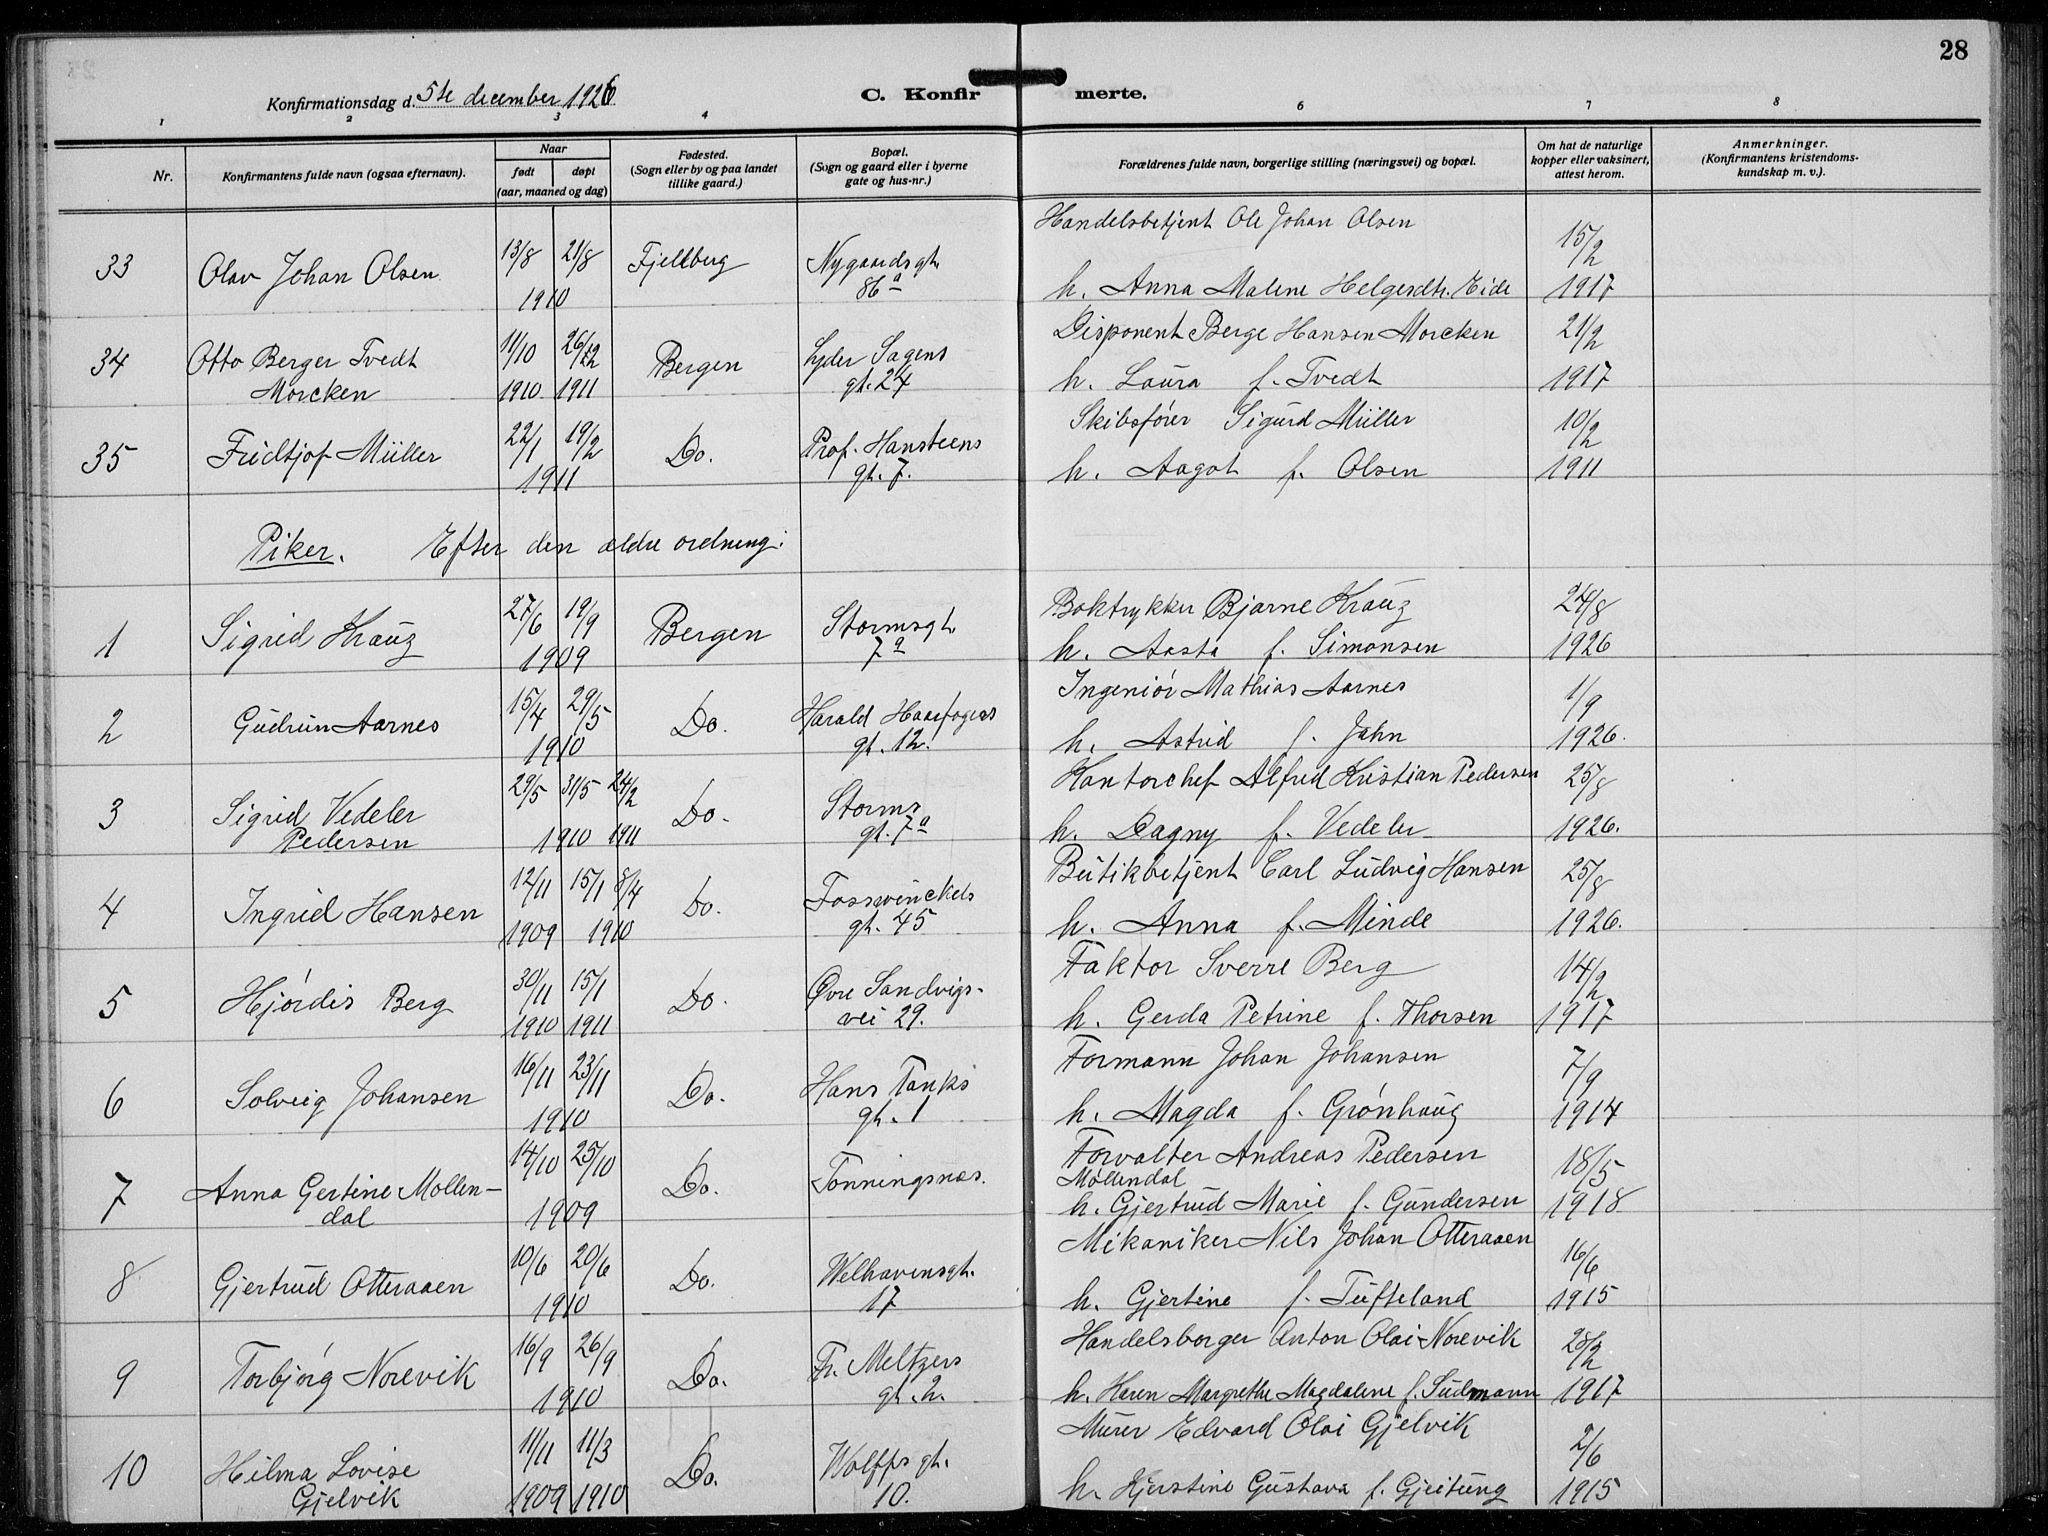 28
Konfirmationsdag d. 5te december 1926
C. Konfirmerte.
1 2 3 4 6 7 8
Nr.
Konfirmantens fulde navn (ogsaa efternavn).
Naar
født døpt
(aar, maaned og dag)
Fødested.
(Sogn eller by og paa landet
tillike gaard.)
Bopæl.
(Sogn og gaard eller i byerne
gate og hus-nr.)
Forældrenes fulde navn, borgerlige stilling (næringsvei) og bopæl.
Om hat de naturlige
kopper eller vaksinert,
attest herom.
Anmerkninger.
(Konfirmantens kristendoms-
kundskap m. v.).
Handelsbetjent Ole Johan Olsen
33 Olav Johan Olsen 13/8 21/8 Fjellberg Nygaardsgt. 15/2
1910 86a h. Anna Malene Helgesdtr. Eide 1917
Disponent Berge Hansen Morcken 21/2
34 Otto Berger Tvedt 11/10 26/12 Bergen Lyder Sagens
Morcken 1910 1911 gt. 24 h. Laura f. Tvedt 1917
Skibsfører Sigurd Müller 10/2
35 Fridtjof Müller 22/1 19/2 Do. Prof. Hansteens
1911 gt. 7. h. Aagot f. Olsen 1911
Piker. Efter den ældre ordning:
Boktrykker Bjarne Krauz 24/8
1 Sigrid Krauz 27/6 19/9 Bergen Stormsgt.
1909 7a h. Aasta f. Simonsen 1926
Ingeniør Mathias Aarnes 1/9
2 Gudrun Aarnes 15/4 29/5 Do. Harald Haarfagers
1910 gt. 12. h. Astrid f. Jahn 1926.
Kontorchef Alfred Kristian Pedersen 25/8
3 Sigrid Vedeler 29/5 31/5 24/2 Do. Storms
Pedersen 1910 1911 gt. 7a h. Dagny f. Vedeler 1926.
Butikbetjent Carl Ludvig Hansen 25/8
4 Ingrid Hansen 12/11 15/1 8/4 Do. Fosswinckels
1909 1910 gt. 45 h. Anna f. Minde 1926.
Faktor Sverre Berg 14/2
5 Hjørdis Berg 30/11 15/1 Do Øvre Sandvigs-
1910 1911 vei 29. h. Gerda Petrine f. Thorsen 1917
Formann Johan Johansen 7/9
6 Solveig Johansen 16/11 23/11 Do. Hans Tanks
1910 gt. 1 h. Magda f. Grønhaug 1914
Forvalter Andreas Pedersen 18/5
Møllendal
7 Anna Gertine Mollen- 14/10 25/10 Do. Tonningsnæs.
dal 1909 h. Gjertrud Marie f. Gundersen 1918
Mekaniker Nils Johan Otteraaen 16/6
8 Gjertrud Otteraaen 10/6 20/6 Do. Welhavensgt.
1910 17 h. Gjertine f. Tufteland 1915
Handelsborger Anton Olai Norevik 28/2
9 Torbjørg Norevik 16/9 26/9 Do. Fr. Meltzers
1910 gt. 2. h. Karen Margrethe Magdalene f. Sudmann 1917
Murer Edvard Olai Gjelvik 2/6
10 Hilma Lovise 11/11 11/3 Do. Wolffs gt.
Gjelvik 1909 1910 10. h. Kjerstine Gustava f. Gjeitung 1915